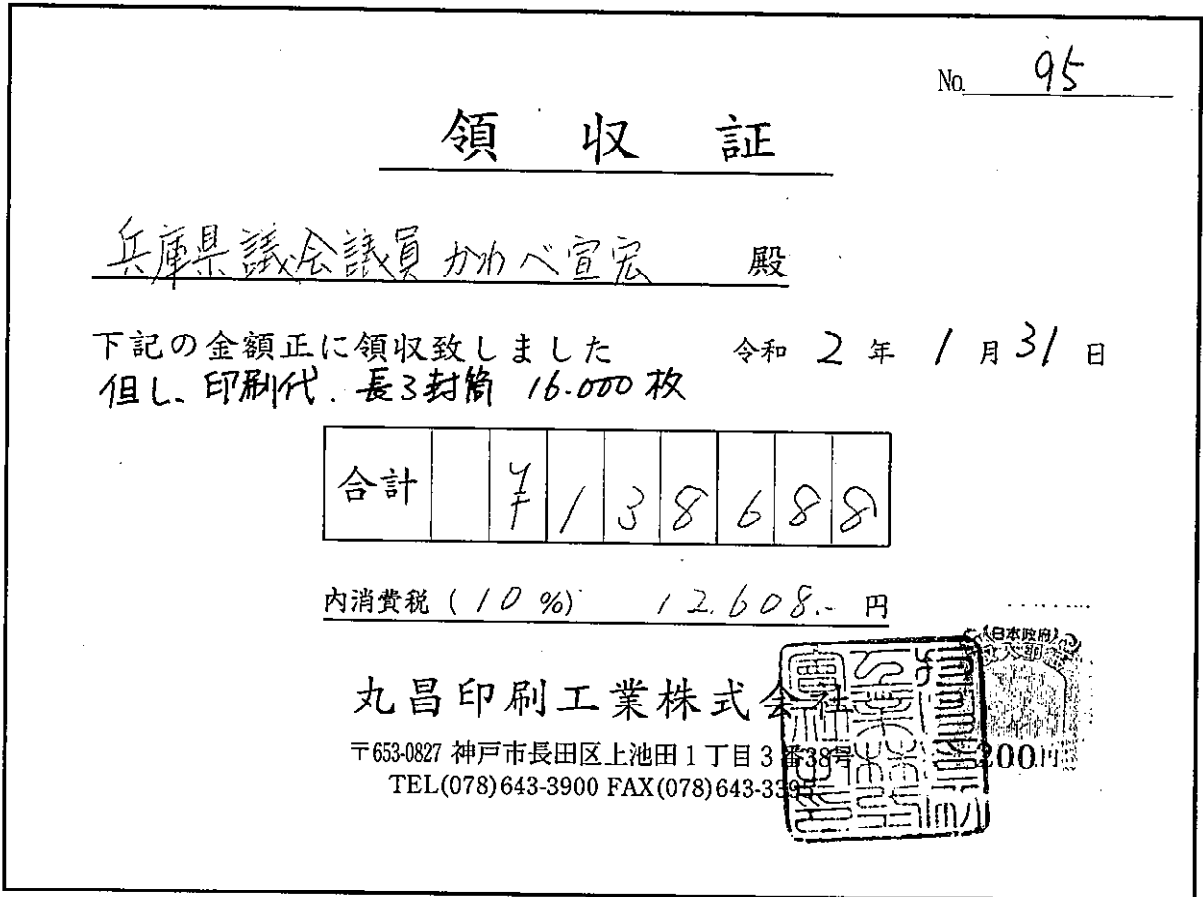 No. 95
領収証
兵庫県議会議員 かわべ宣宏 殿
下記の金額正に領収致しました 令和 2 年 1 月 31 日
但し、印刷代. 長3封筒 16.000枚
合計 ¥138688
内消費税 (10%) 12.608.- 円
日本政府
丸昌印刷工業株式会社
〒653-0827 神戸市長田区上池田1丁目3番38号 200円
TEL(078)643-3900 FAX(078)643-3395